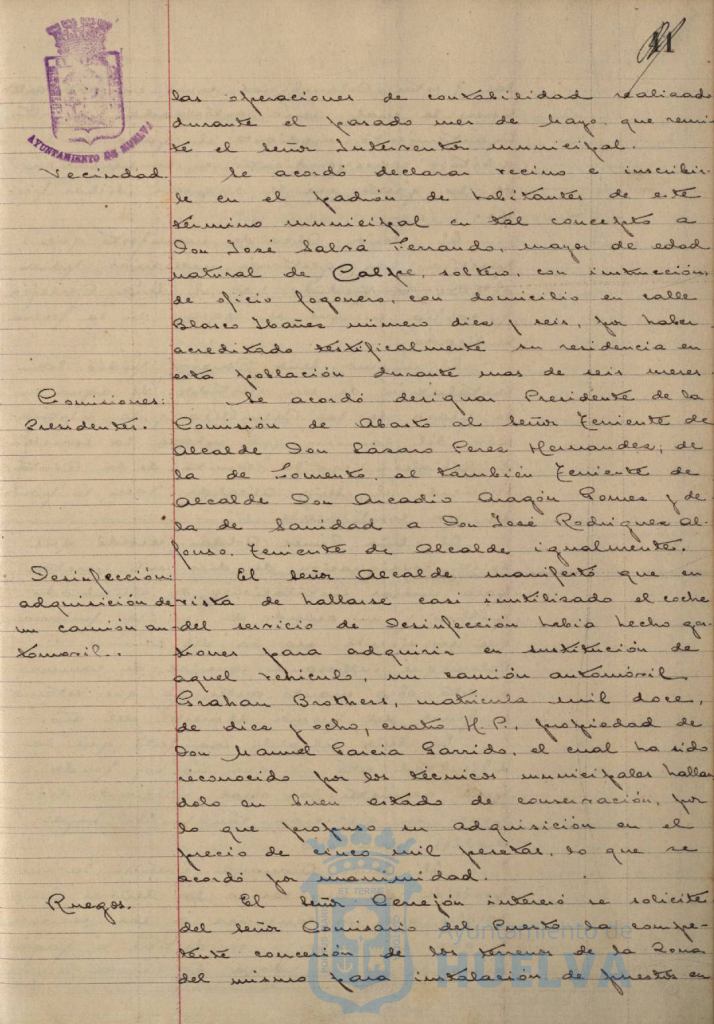 41
AYUNTAMIENTO DE HUELVA
las operaciones de contabilidad realizado
durante el pasado mes de Mayo, que remi-
te el señor Interventor municipal.
Vecindad.
Se acordó declarar vecino e inscribir-
le en el padrón de habitantes de este
término municipal en tal concepto a
Don José Salvá Ferrando, mayor de edad
natural de Calpe, soltero, con instrucción,
de oficio fogonero, con domicilio en calle
Blasco Ibañez número diez y seis, por haber
acreditado testificalmente su residencia en
esta población durante mas de seis meses.
Comisiones:
Presidentes.
Se acordó designar Presidente de la
Comisión de Abasto al Señor Teniente de
Alcalde Don Lázaro Perez Hernandez; de
la de Fomento, al también Teniente de
Alcalde Don Arcadio Aragón Gomez y de
la de Sanidad a Don José Rodriguez Al-
fonso, Teniente de Alcalde igualmente.
Desinfección
adquisición de
un camión au-
tomovil.
El señor Alcalde manifestó que en
vista de hallarse casi inutilizado el coche
del servicio de Desinfección habia hecho ges-
tiones para adquirir en sustitución de
aquel vehiculo, un camión automóvil
Grahan Brothers, matricula mil doce,
de diez y ocho, cuatro H.P., propiedad de
Don Manuel Garcia Garrido, el cual ha sido
reconocido por los técnicos municipales hallan
dolo en buen estado de conservación, por
lo que propuso su adquisición en el
precio de cinco mil pesetas, lo que se
acordó por unanimidad.
Ruegos.
El señor Cerejón interesó se solicite
del señor Comisario del Puerto la compe-
tente concesión de los terrenos de la Zona
del mismo para instalación de puestos en
Ayuntamiento de
HUELVA